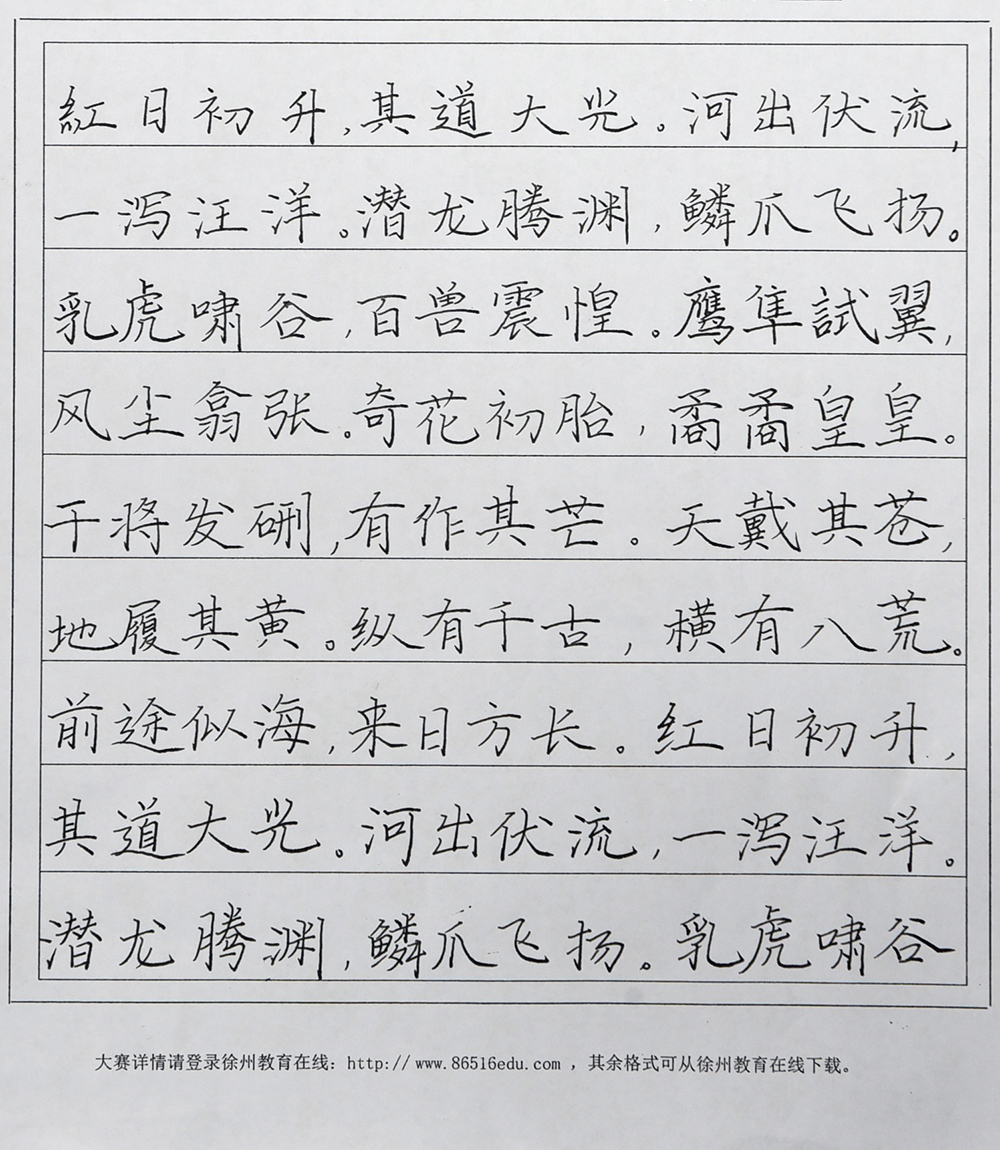 紅日初升,其道大光。河出伏流,
一泻汪洋。潜龙腾渊,鳞爪飞扬。
乳虎啸谷,百兽震惶。鹰隼試翼,
风尘翕张。奇花初胎,矞矞皇皇。
干将发硎,有作其芒。天戴其苍,
地履其黄。纵有千古,横有八荒。
前途似海,来日方长。红日初升,
其道大光。河出伏流,一泻汪洋。
潜龙腾渊,鳞爪飞扬。乳虎啸谷
大赛详情请登录徐州教育在线：http://www.86516edu.com ，其余格式可从徐州教育在线下载。